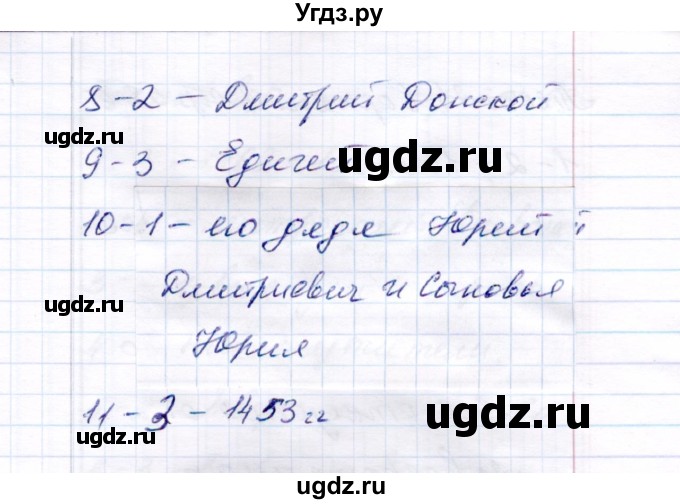 Угдз.ру
8-2 - Дмитрий Донской
ugdz.ru
9-3 - Едигей
ugdz.ru
ugdz.ru
10-1 - его дядя Юрий
Дмитриевич и Сыновья
ugdz.ru
Юрия
11-3 - 1453 гг
ugdz.ru
ugdz.ru
ugdz.ru